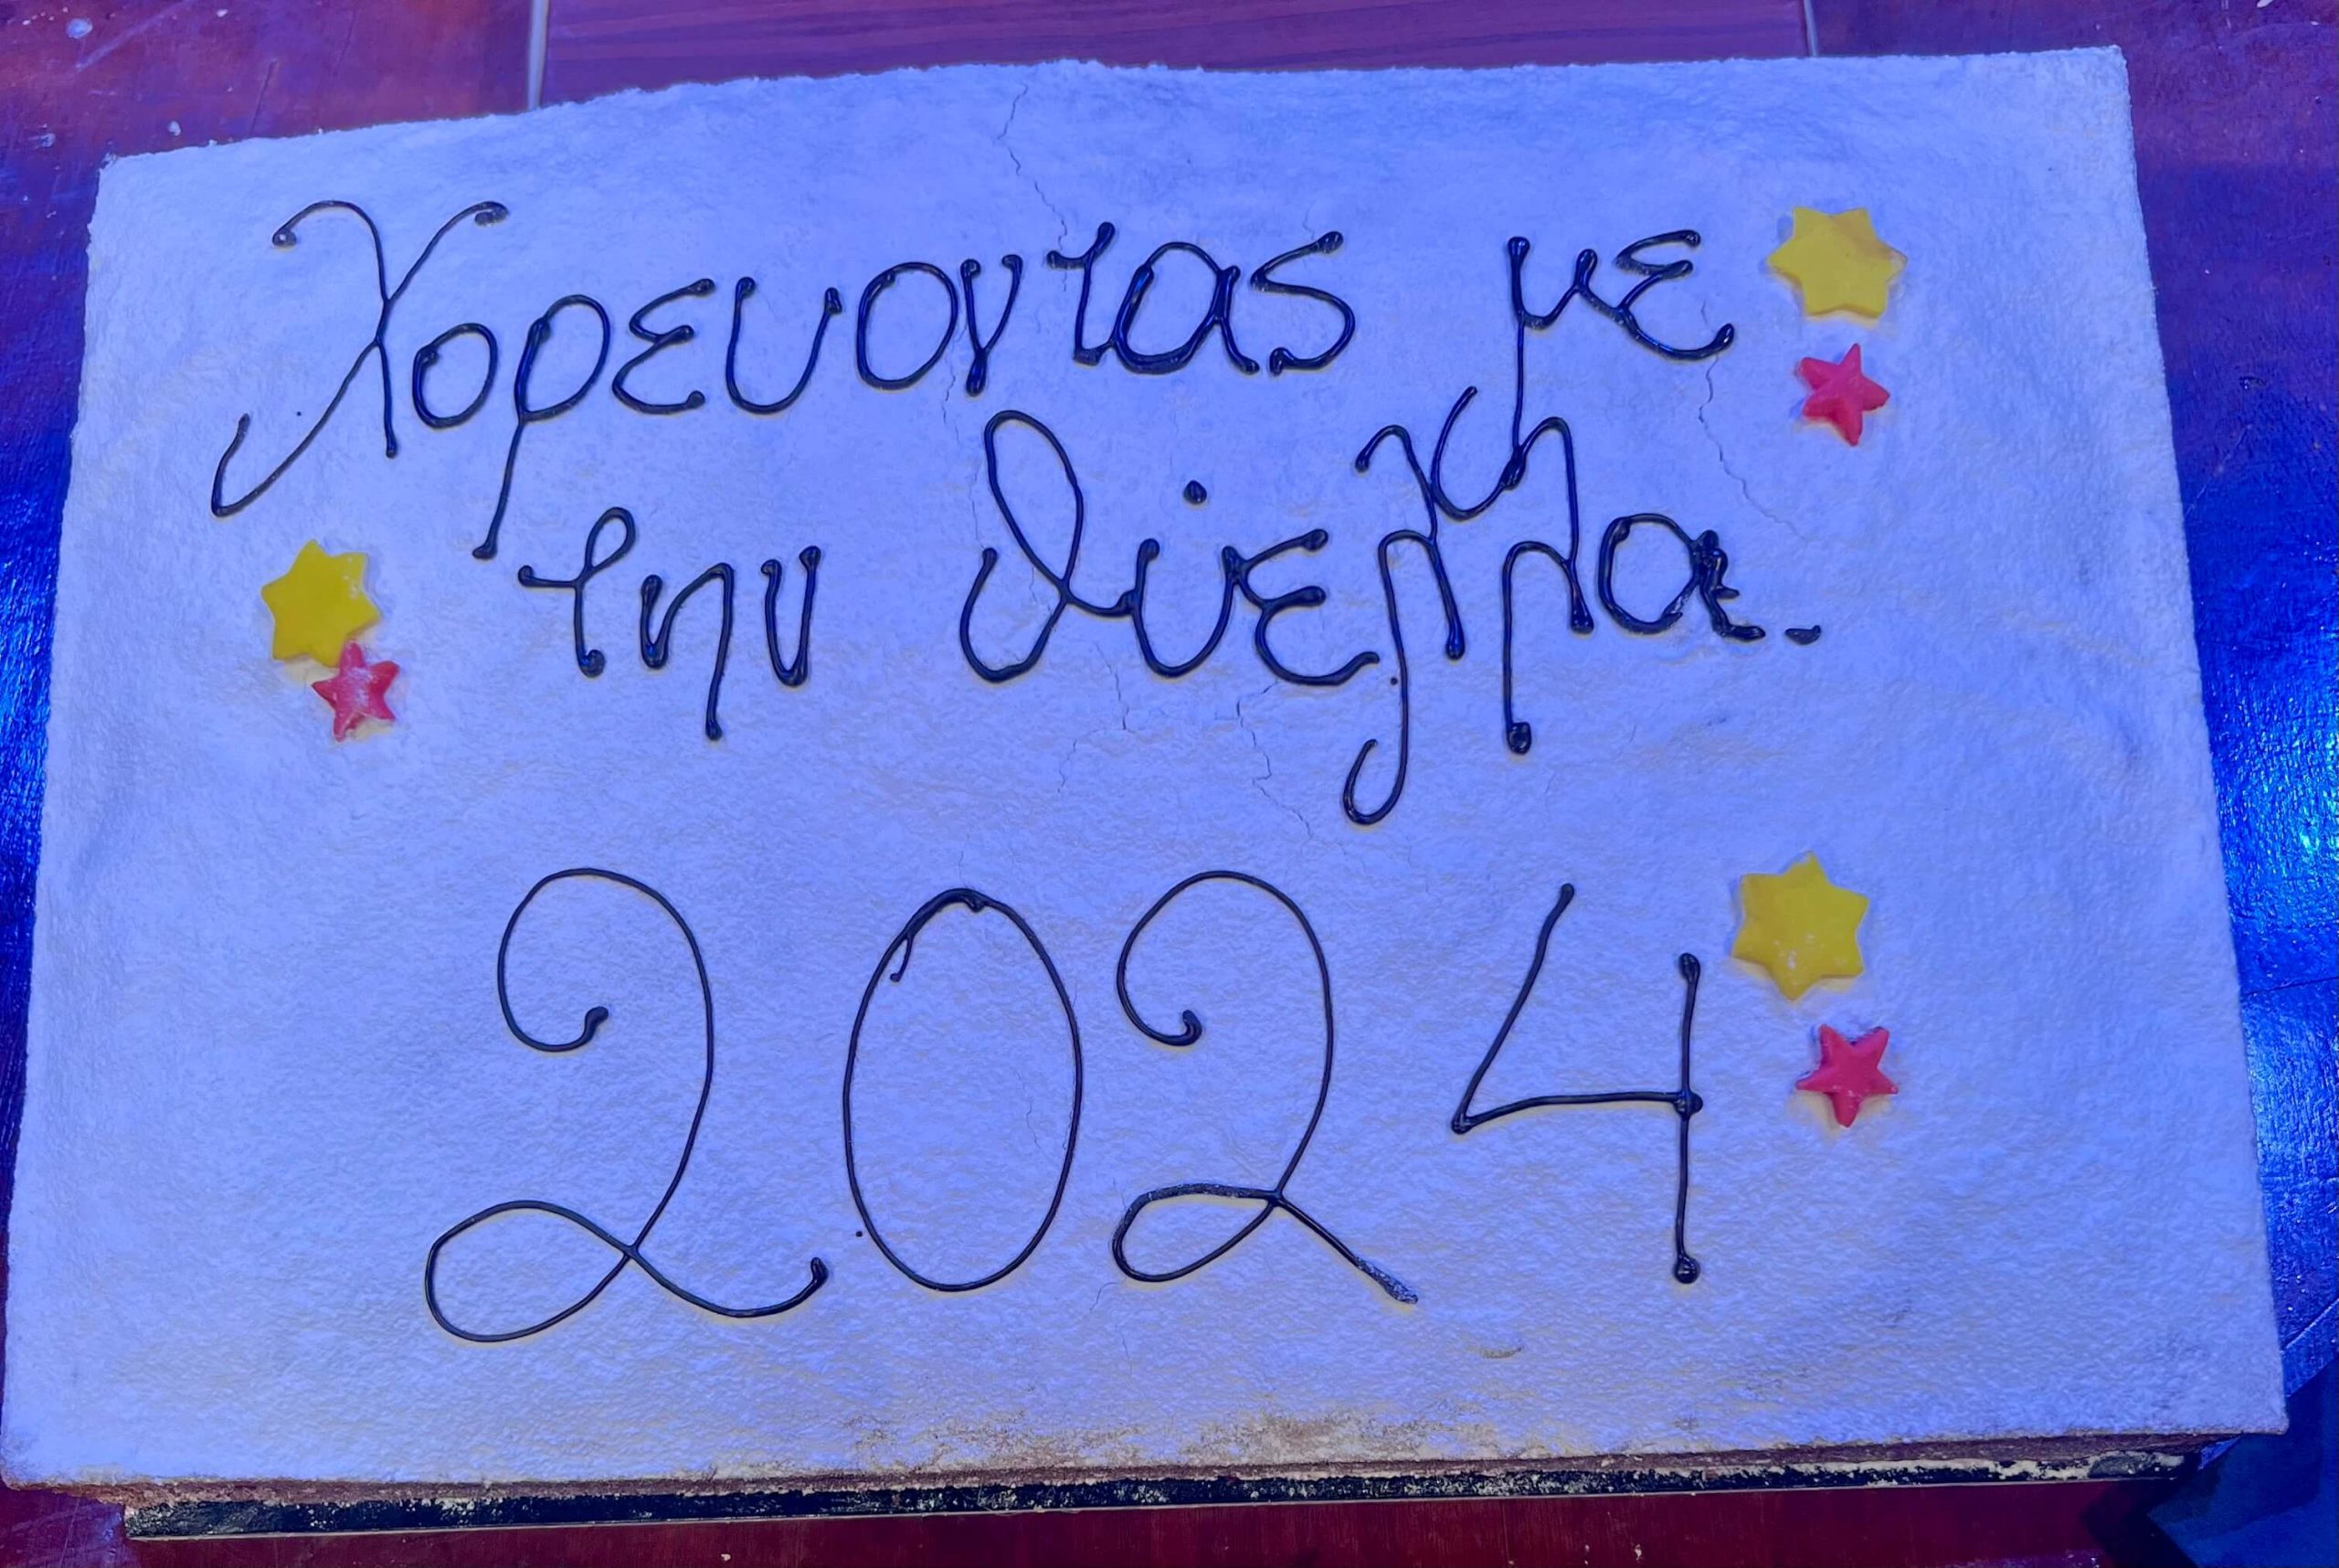 Χορευοντας με
την θύελλα
2024